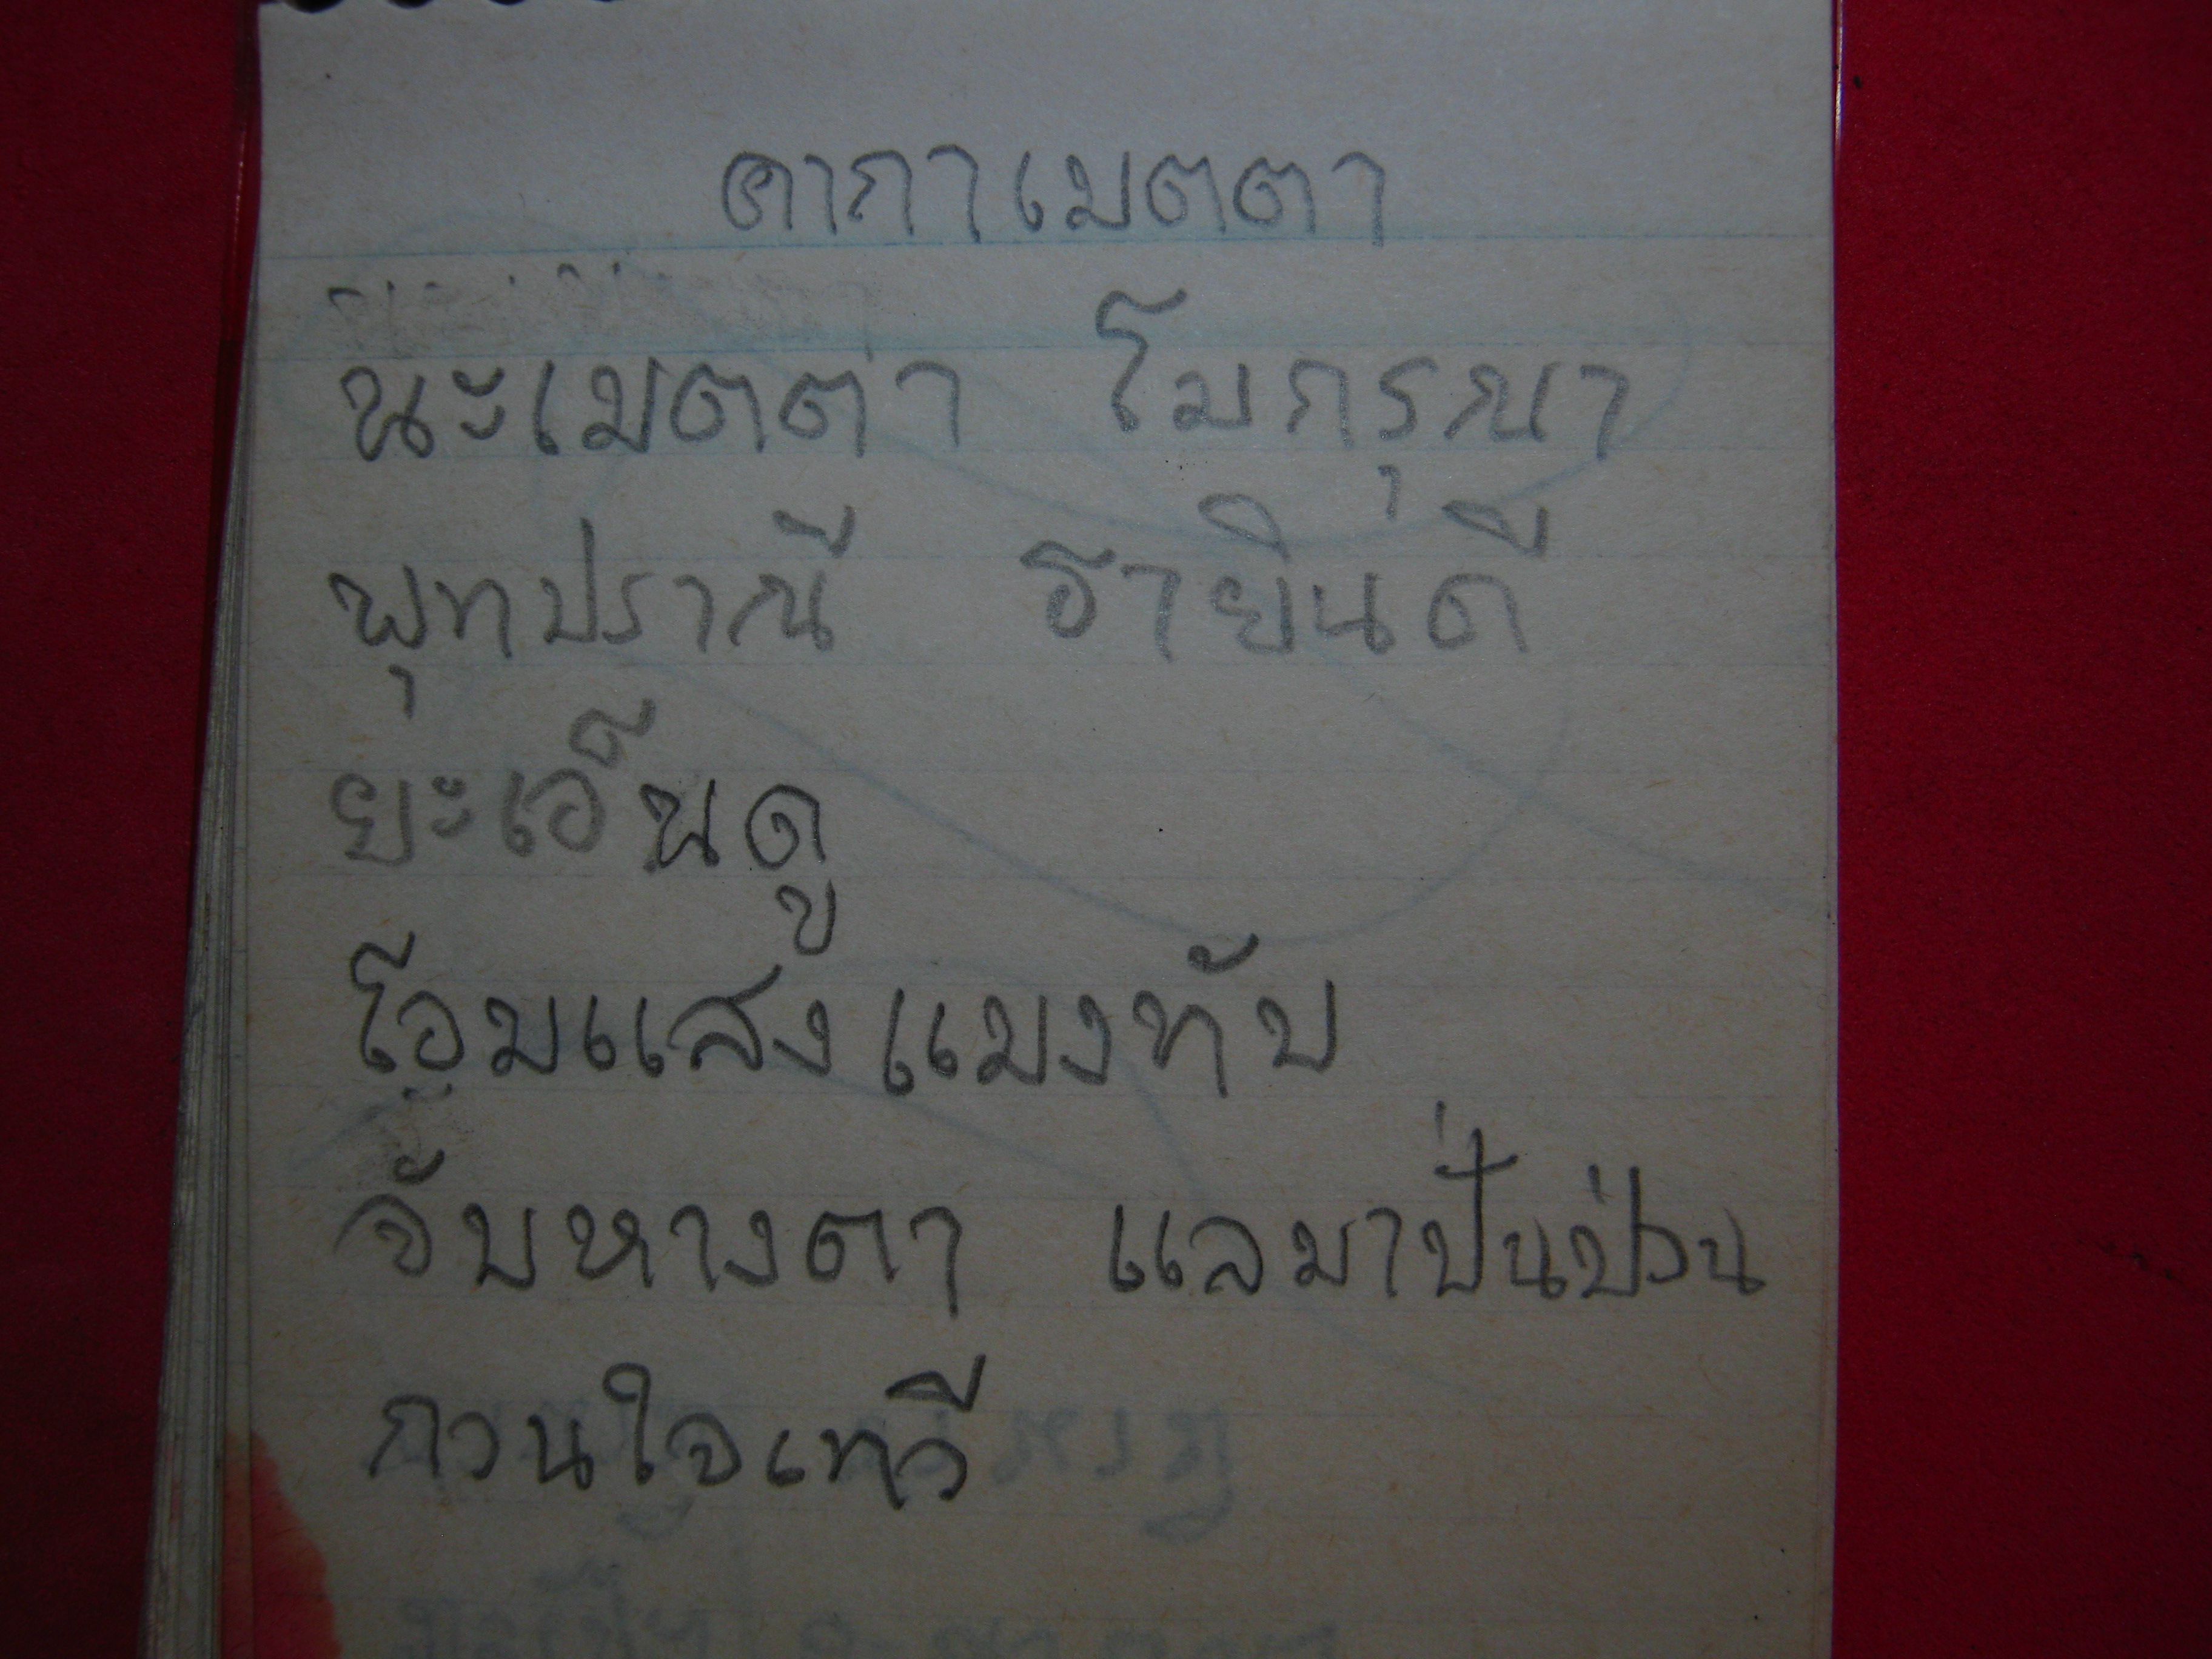 คากาเมตตา
นะเมตตา โมกรุณา
พุทปราณี ธายินดี
ยะเอ็นดู
โอมแสงแมงทับ
จับหางตา แลมาปั่นป่วน
กวนใจเทวี